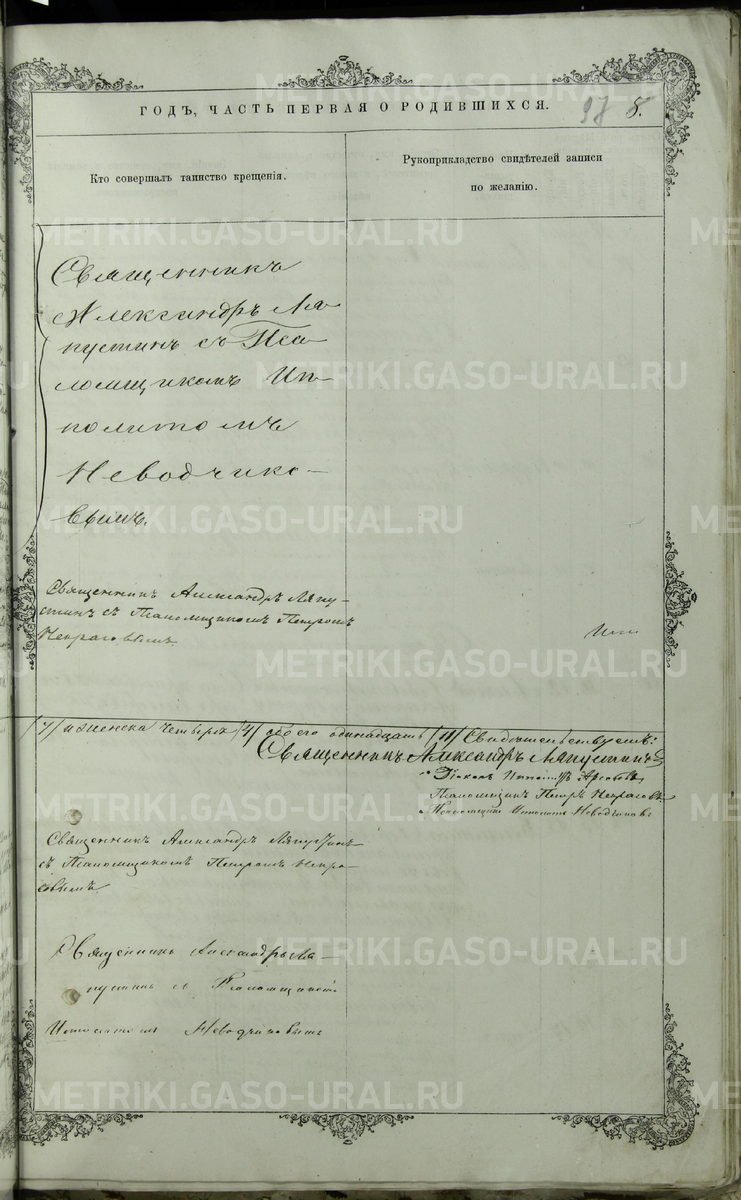 ГОДЪ, ЧАСТЬ ПЕРВАЯ О РОДИВШИХСЯ.
97 8.
Кто совершалъ таинство крещенія.
Рукоприкладство свидѣтелей записи
по желанію.
Священникъ
Александръ Ля-
пустинъ съ Пса-
ломщикомъ Ип-
политомъ
Неводчико-
вымъ.
Священникъ Александръ Ляпу-
стинъ съ Псаломщикомъ Петромъ
Некрасовымъ
/7/ и женска четырех /4/ обоего одинадцать /11/ Свидѣтельствуемъ:
Священникъ Александръ Ляпустинъ
Діаконъ
Псаломщикъ Петръ Некрасовъ
Псаломщикъ Ипполитъ Неводчиковъ
Священникъ Александръ Ляпустинъ
съ Псаломщикомъ Петромъ Некра-
совымъ
Священникъ Александръ Ля-
пустинъ съ Псаломщикомъ
Ипполитомъ Неводчиковымъ
METRIKI.GASO-URAL.RU